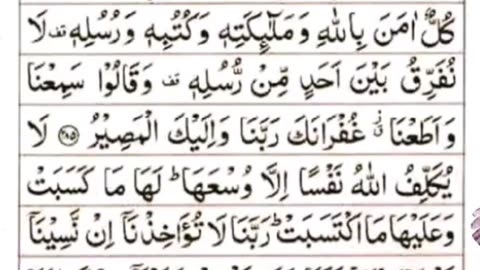 كُلٌّ اٰمَنَ بِاللّٰهِ وَ مَلٰٓئِكَتِهٖ وَ كُتُبِهٖ وَ رُسُلِهٖ قف لَا
نُفَرِّقُ بَيْنَ اَحَدٍ مِّنْ رُّسُلِهٖ قف وَ قَالُوْا سَمِعْنَا
وَ اَطَعْنَا غُفْرَانَكَ رَبَّنَا وَ اِلَيْكَ الْمَصِيْرُ ﴿۲۸۵﴾ لَا
يُكَلِّفُ اللّٰهُ نَفْسًا اِلَّا وُسْعَهَا ؕ لَهَا مَا كَسَبَتْ
وَ عَلَيْهَا مَا اكْتَسَبَتْ ؕ رَبَّنَا لَا تُؤَاخِذْنَاۤ اِنْ نَّسِيْنَاۤ